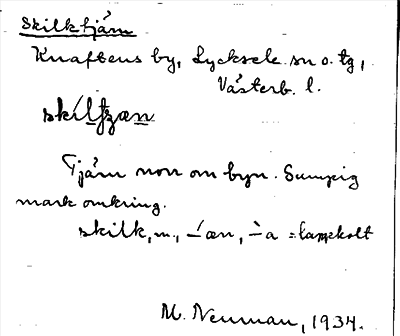 Skilktjärn
Knaftens by, Lycksele sn o. tg,
Västerb. l.
skíltʒæn
Tjärn norr om byn. Sumpig
mark omkring.
skilk, m., -æn, -a = lappkolt
M. Neuman, 1934.